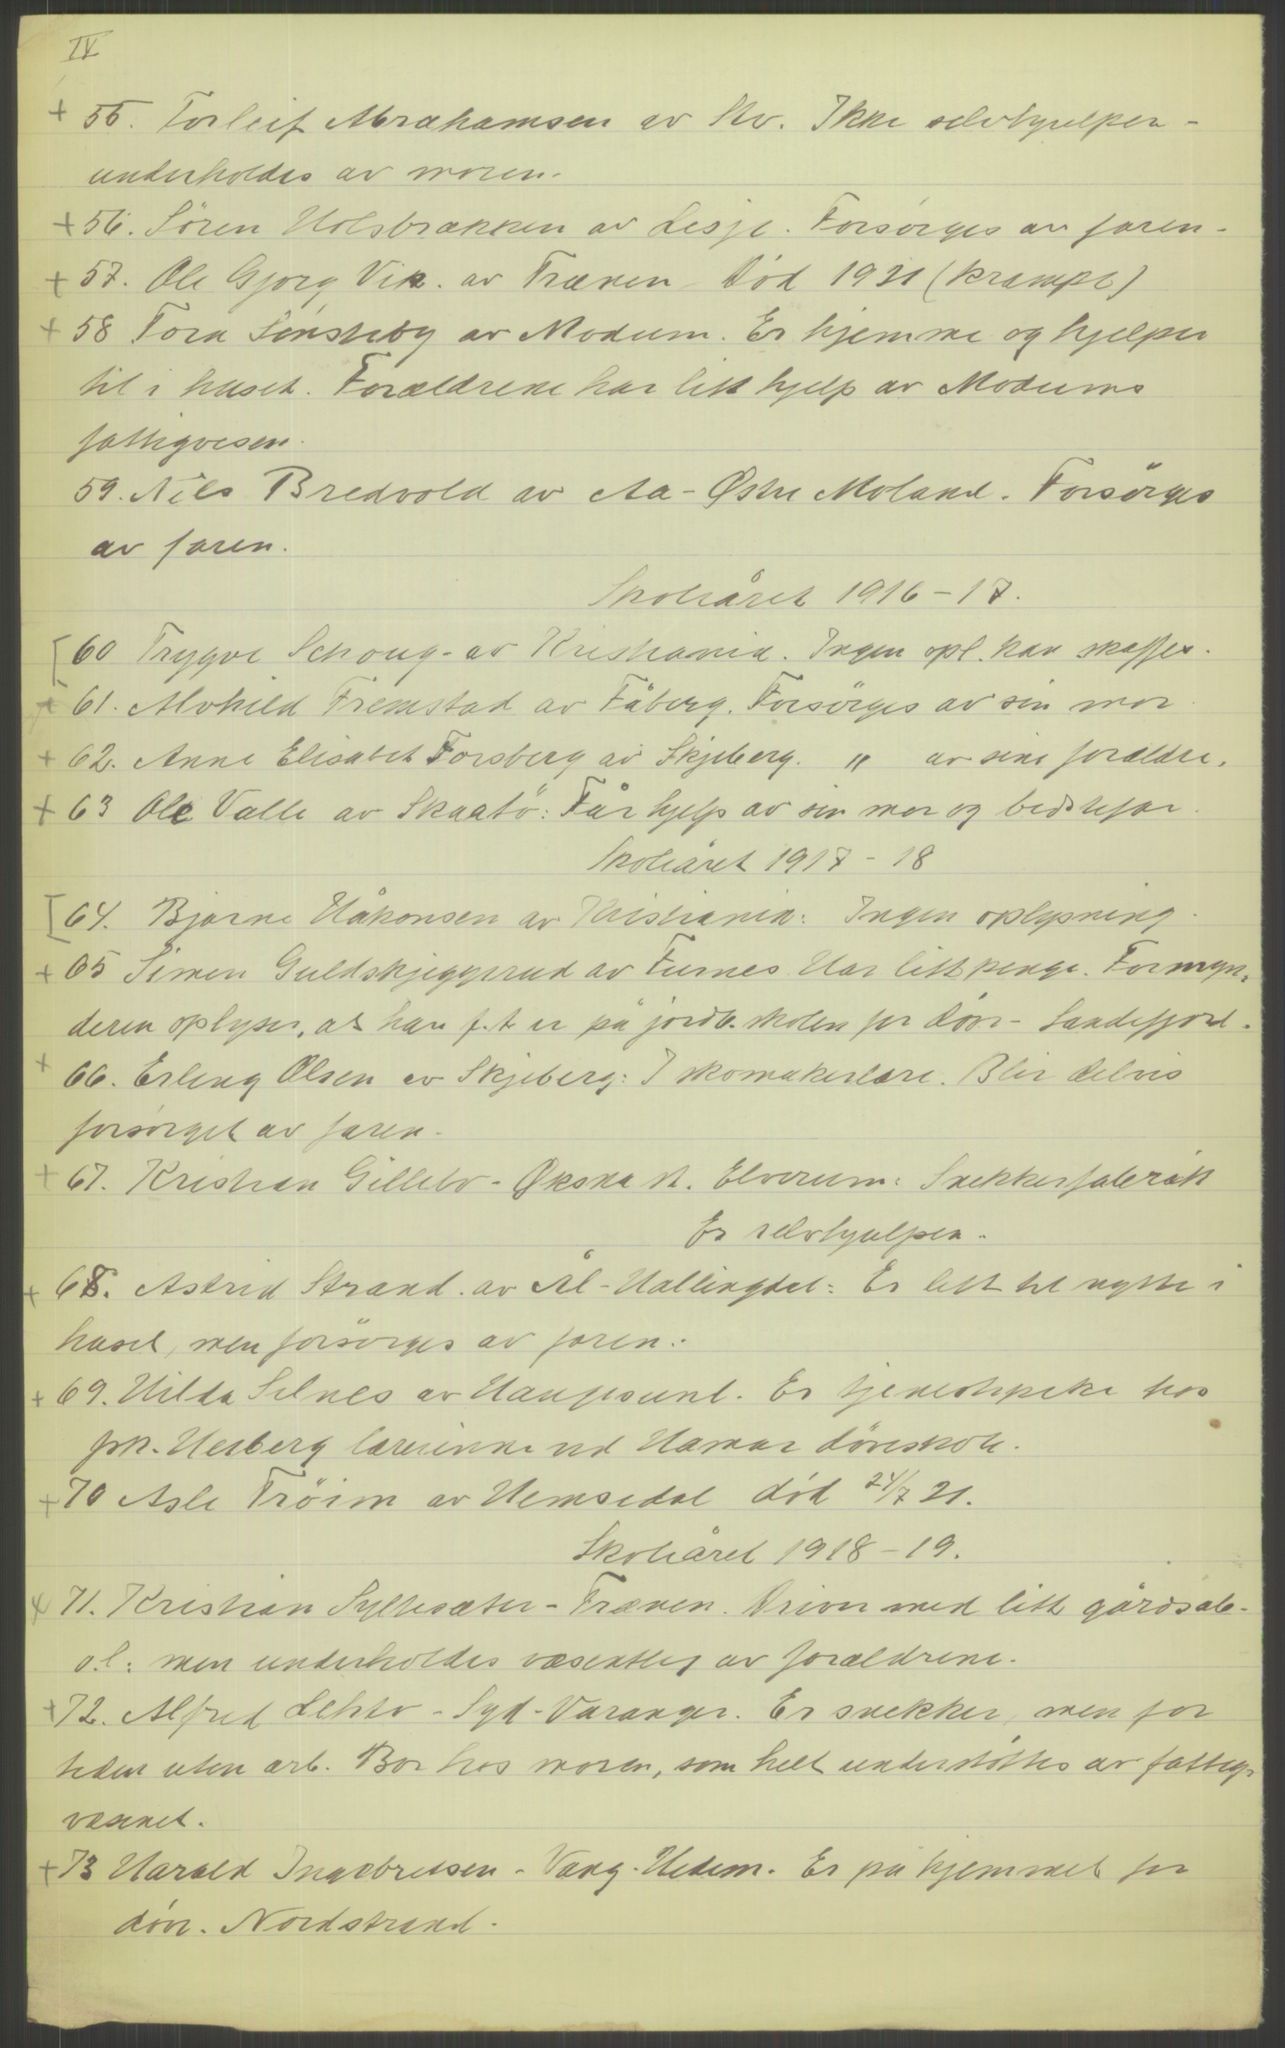 IV
+ 55. Torleif Abrahamsen av Kr. Ikke selvhjulpen -
underholdes av moren.
+ 56. Sören Holsbrækken av Lesje. Forsörges av faren.
+ 57. Ole Gjorg Vik. av Frænen Död 1921 (krampe)
+ 58 Tora Sönsteby av Modum. Er hjemme og hjelper
til i huset. Forældrene har litt hjelp av Modums
fattigvesen.
59. Nils Bredvold av Aa - Østre Moland. Forsörges
av faren.
Skoleåret 1916-17.
[60 Trygve Schoug - av Kristiania. Ingen opl. kan skaffes.
+ 61. Alvhild Fremstad av Fåberg. Forsörges av sin mor
+ 62. Anne Elisabet Forsberg av Skjeberg. " av sine forældre.
+ 63 Ole Valle av Skaatö: Får hjelp av sin mor og bedstefar.
Skoleåret 1917 - 18
[64. Bjarne Håkonsen av Kristiania: Ingen oplysning.
+ 65 Simen Guldskjeggerud av Furnes Har litt penge. Formyn-
deren oplyser, at han f.t. er på jordb. skolen for döve - Sandefjord.
+ 66. Erling Olsen av Skjeberg: I skomakerlære. Blir delvis
forsörget av faren.
+ 67. Kristian Gillebo - Øksna st. Elverum: Snekkerfabrikk
Er selvhjulpen.
+ 68. Astrid Strand. av Ål - Hallingdal: Er litt til nytte i
huset, men forsörges av faren.
+ 69. Hilda Selnes av Haugesund. Er tjenestepike hos
frk. Hesberg lærerinne ved Hamar döveskole.
+ 70 Asle Tröim av Hemsedal död 24/7 21.
Skoleåret 1918-19.
+ 71. Kristian Syltesæter - Frænen. Driver med litt gårdsarb.
o.l. men underholdes væsentlig av forældrene.
+ 72. Alfred Lehto - Syd-Varanger. Er snekker, men for
tiden uten arb. Bor hos moren, som helt understöttes av fattig-
væsenet.
+ 73 Harald Ingebretsen - Vang. Hedem. Er på hjemmet for
döve. Nordstrand.